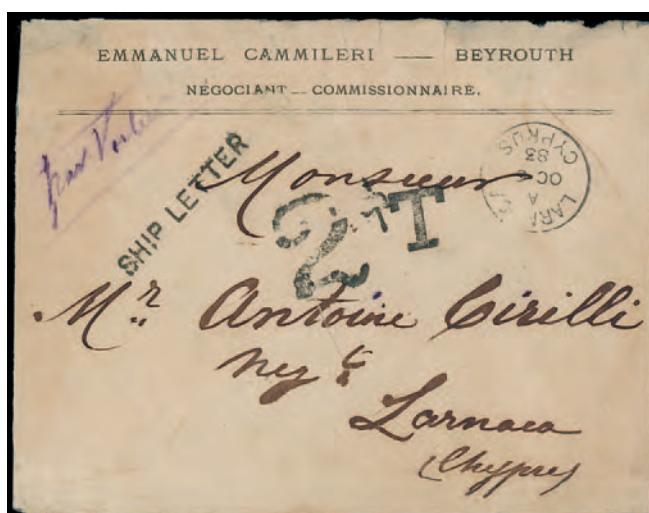 EMMANUEL CAMMILERI — BEYROUTH
NÉGOCIANT — COMMISSIONNAIRE.
par
SHIP LETTER
CYPRUS
83
OC
A
LARNA
Monsieur
2 T
Mr Antoine Cirilli
negt
Larnaca
(Chypre)